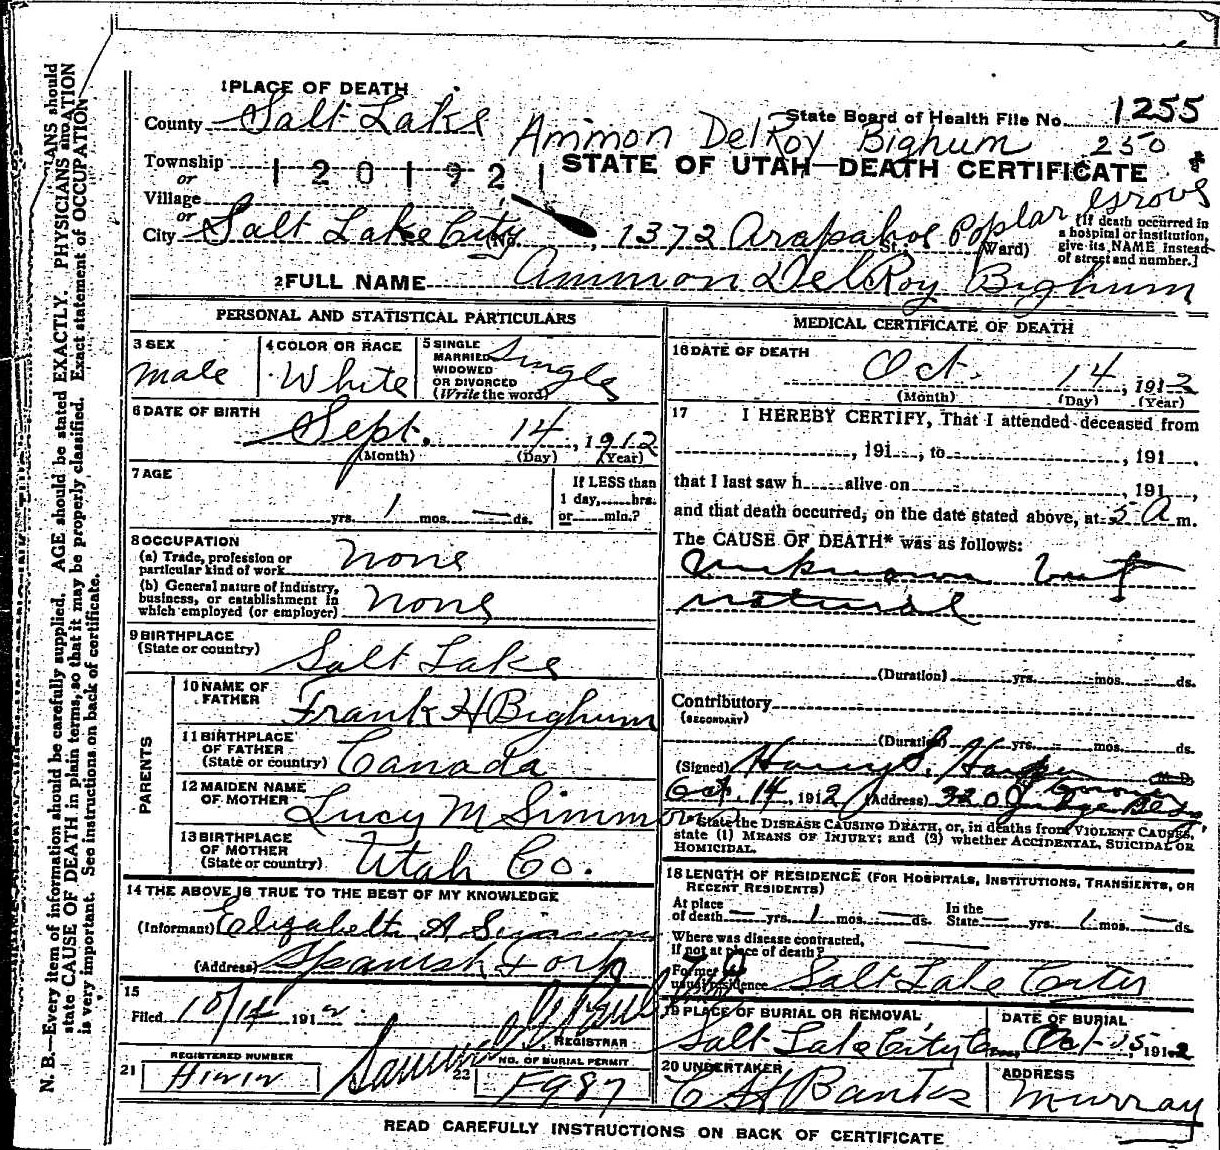 1 PLACE OF DEATH
County Salt Lake
State Board of Health File No. 1255
Ammon DelRoy Bighum 250
Township
or
1 2 0 1 9 2 1
STATE OF UTAH—DEATH CERTIFICATE
Village
or
City Salt Lake City (No. , 1372 Arapahoe St.; Poplar Grove Ward)
[If death occurred in
a hospital or institution,
give its NAME instead
of street and number.]
2 FULL NAME Ammon DelRoy Bighum
PERSONAL AND STATISTICAL PARTICULARS
3 SEX
Male
4 COLOR OR RACE
White
5 SINGLE
MARRIED
WIDOWED
OR DIVORCED
(Write the word)
Single
6 DATE OF BIRTH
Sept. 14, 1912
(Month) (Day) (Year)
7 AGE
yrs. 1 mos. — ds.
If LESS than
1 day, hrs.
or min.?
8 OCCUPATION
(a) Trade, profession or
particular kind of work None
(b) General nature of industry,
business, or establishment in
which employed (or employer) None
9 BIRTHPLACE
(State or country) Salt Lake
PARENTS
10 NAME OF
FATHER Frank H Bighum
11 BIRTHPLACE
OF FATHER
(State or country) Canada
12 MAIDEN NAME
OF MOTHER Lucy M Simmons
13 BIRTHPLACE
OF MOTHER
(State or country) Utah Co.
14 THE ABOVE IS TRUE TO THE BEST OF MY KNOWLEDGE
(Informant) Elizabeth A Simmons
(Address) Spanish Fork
15
Filed 10/14 1912
REGISTRAR
REGISTERED NUMBER
21
22 NO. OF BURIAL PERMIT
F987
MEDICAL CERTIFICATE OF DEATH
16 DATE OF DEATH
Oct. 14, 1912
(Month) (Day) (Year)
17 I HEREBY CERTIFY, That I attended deceased from
, 191 , to , 191 ,
that I last saw h alive on , 191 ,
and that death occurred, on the date stated above, at 5 A m.
The CAUSE OF DEATH* was as follows:
Unknown but
natural
(Duration) yrs. mos. ds.
Contributory
(SECONDARY)
(Duration) yrs. mos. ds.
(Signed) Harry S. Harper M.D.
Coroner
Oct. 14, 1912 (Address) 320 Judge Bldg.
*State the DISEASE CAUSING DEATH, or, in deaths from VIOLENT CAUSES,
state (1) MEANS OF INJURY; and (2) whether ACCIDENTAL, SUICIDAL OR
HOMICIDAL.
18 LENGTH OF RESIDENCE (FOR HOSPITALS, INSTITUTIONS, TRANSIENTS, OR
RECENT RESIDENTS)
At place
of death — yrs. 1 mos. — ds.
In the
State — yrs. 1 mos. — ds.
Where was disease contracted,
If not at place of death?
Former or
usual residence Salt Lake
19 PLACE OF BURIAL OR REMOVAL
Salt Lake City Cem.
DATE OF BURIAL
Oct 15, 1912
20 UNDERTAKER
Banks
ADDRESS
Murray
READ CAREFULLY INSTRUCTIONS ON BACK OF CERTIFICATE
N. B.—Every item of information should be carefully supplied. AGE should be stated EXACTLY. PHYSICIANS should
state CAUSE OF DEATH in plain terms, so that it may be properly classified. Exact statement of OCCUPATION
is very important. See instructions on back of certificate.